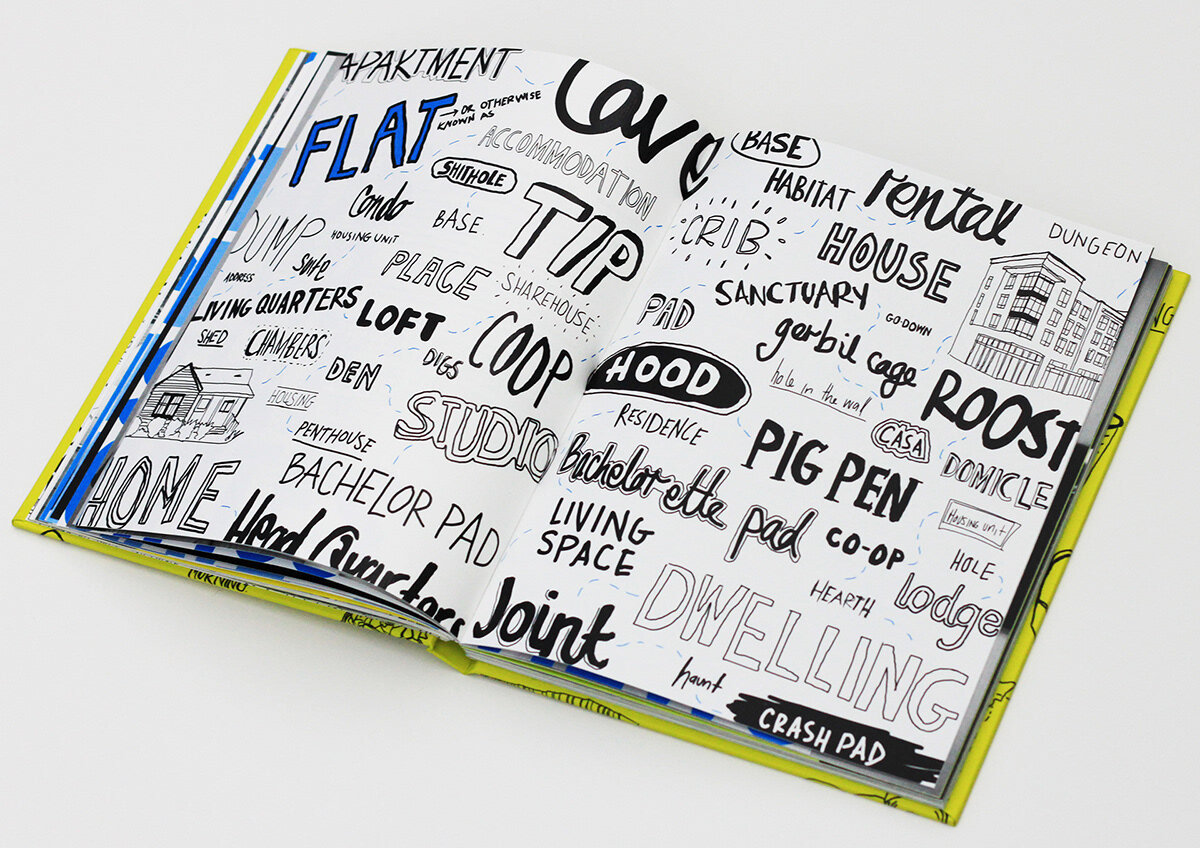 APARTMENT
FLAT
→ OR OTHERWISE
KNOWN AS
ACCOMMODATION
Cave
SHITHOLE
Condo
BASE
TIP
DUMP
HOUSING UNIT
ADDRESS
Suite
PLACE
SHAREHOUSE
LIVING QUARTERS
LOFT
COOP
SHED
CHAMBERS
DEN
DIGS
HOUSING
STUDIO
PENTHOUSE
BACHELOR PAD
HOME
Head Quarters
BASE
HABITAT
rental
DUNGEON
CRIB
HOUSE
SANCTUARY
PAD
GO-DOWN
gerbil cage
HOOD
hole in the wal
ROOST
RESIDENCE
CASA
PIG PEN
DOMICLE
Bachelorette pad
HOUSING UNIT
LIVING
SPACE
CO-OP
HOLE
HEARTH
lodge
Joint
DWELLING
haunt
CRASH PAD